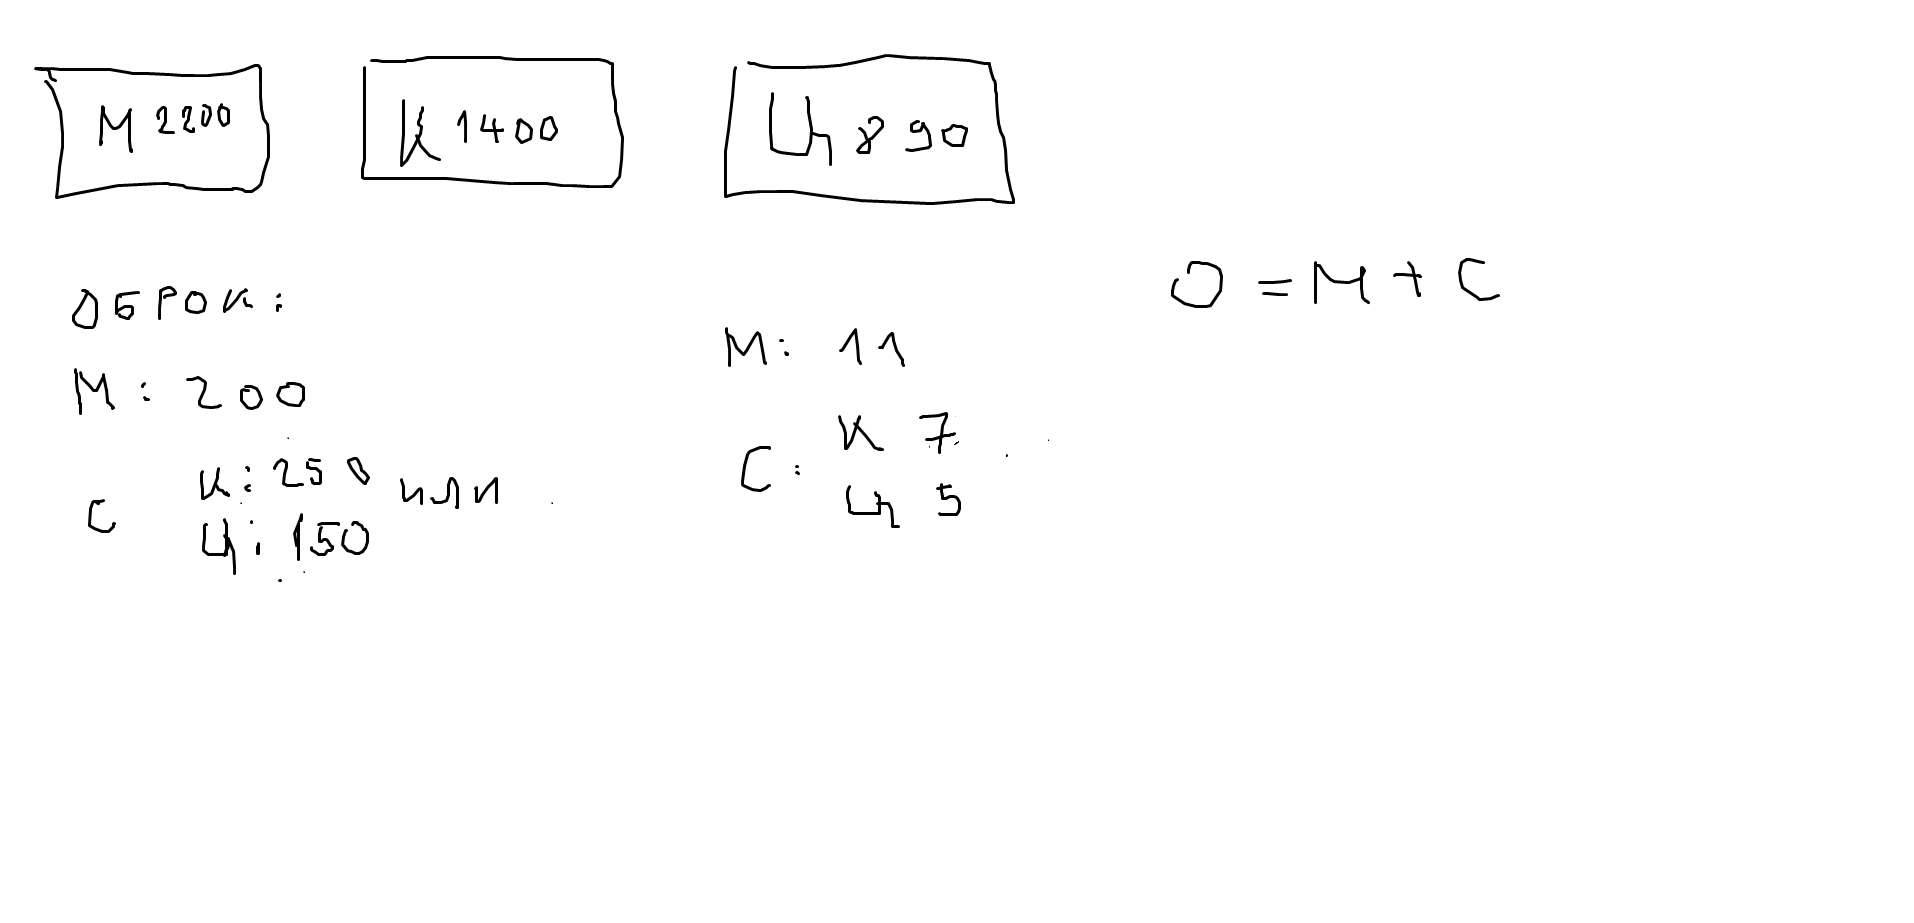 М 2200
К 1400
Ц 890
ОБРОК:
М: 200
С
К: 250 или
Ц: 150
М: 11
С:
К 7
Ц 5
О = М + С